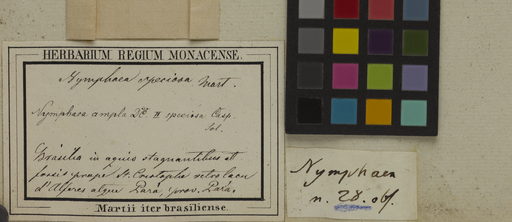 HERBARIUM REGIUM MONACENSE.
Nymphaea speciosa Mart.
Nymphaea ampla DC. II speciosa Casp.
Brasilia in aquis stagnantibus et
fossis prope St. retro
d'Ilheos atque Pará, prov. Pará,
Martii iter brasiliense.
Nymphaea
n. 28. obs.